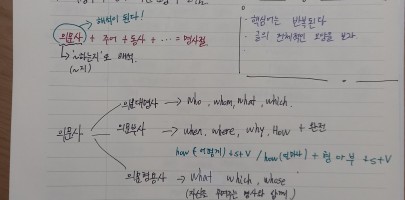 해석이 된다!
의문사 + 주어 + 동사 + ... = 명사절
↳ '~하는지'로 해석.
(~지)
· 핵심어는 반복된다
· 글의 전체적인 모양을 보자
의문대명사 → who, whom, what, which.
의문사
의문부사 → when, where, why, How + 완전
how (어떻게) + S + V / how (얼마나) + 형 or 부 + S + V
의문형용사 → what which, whose